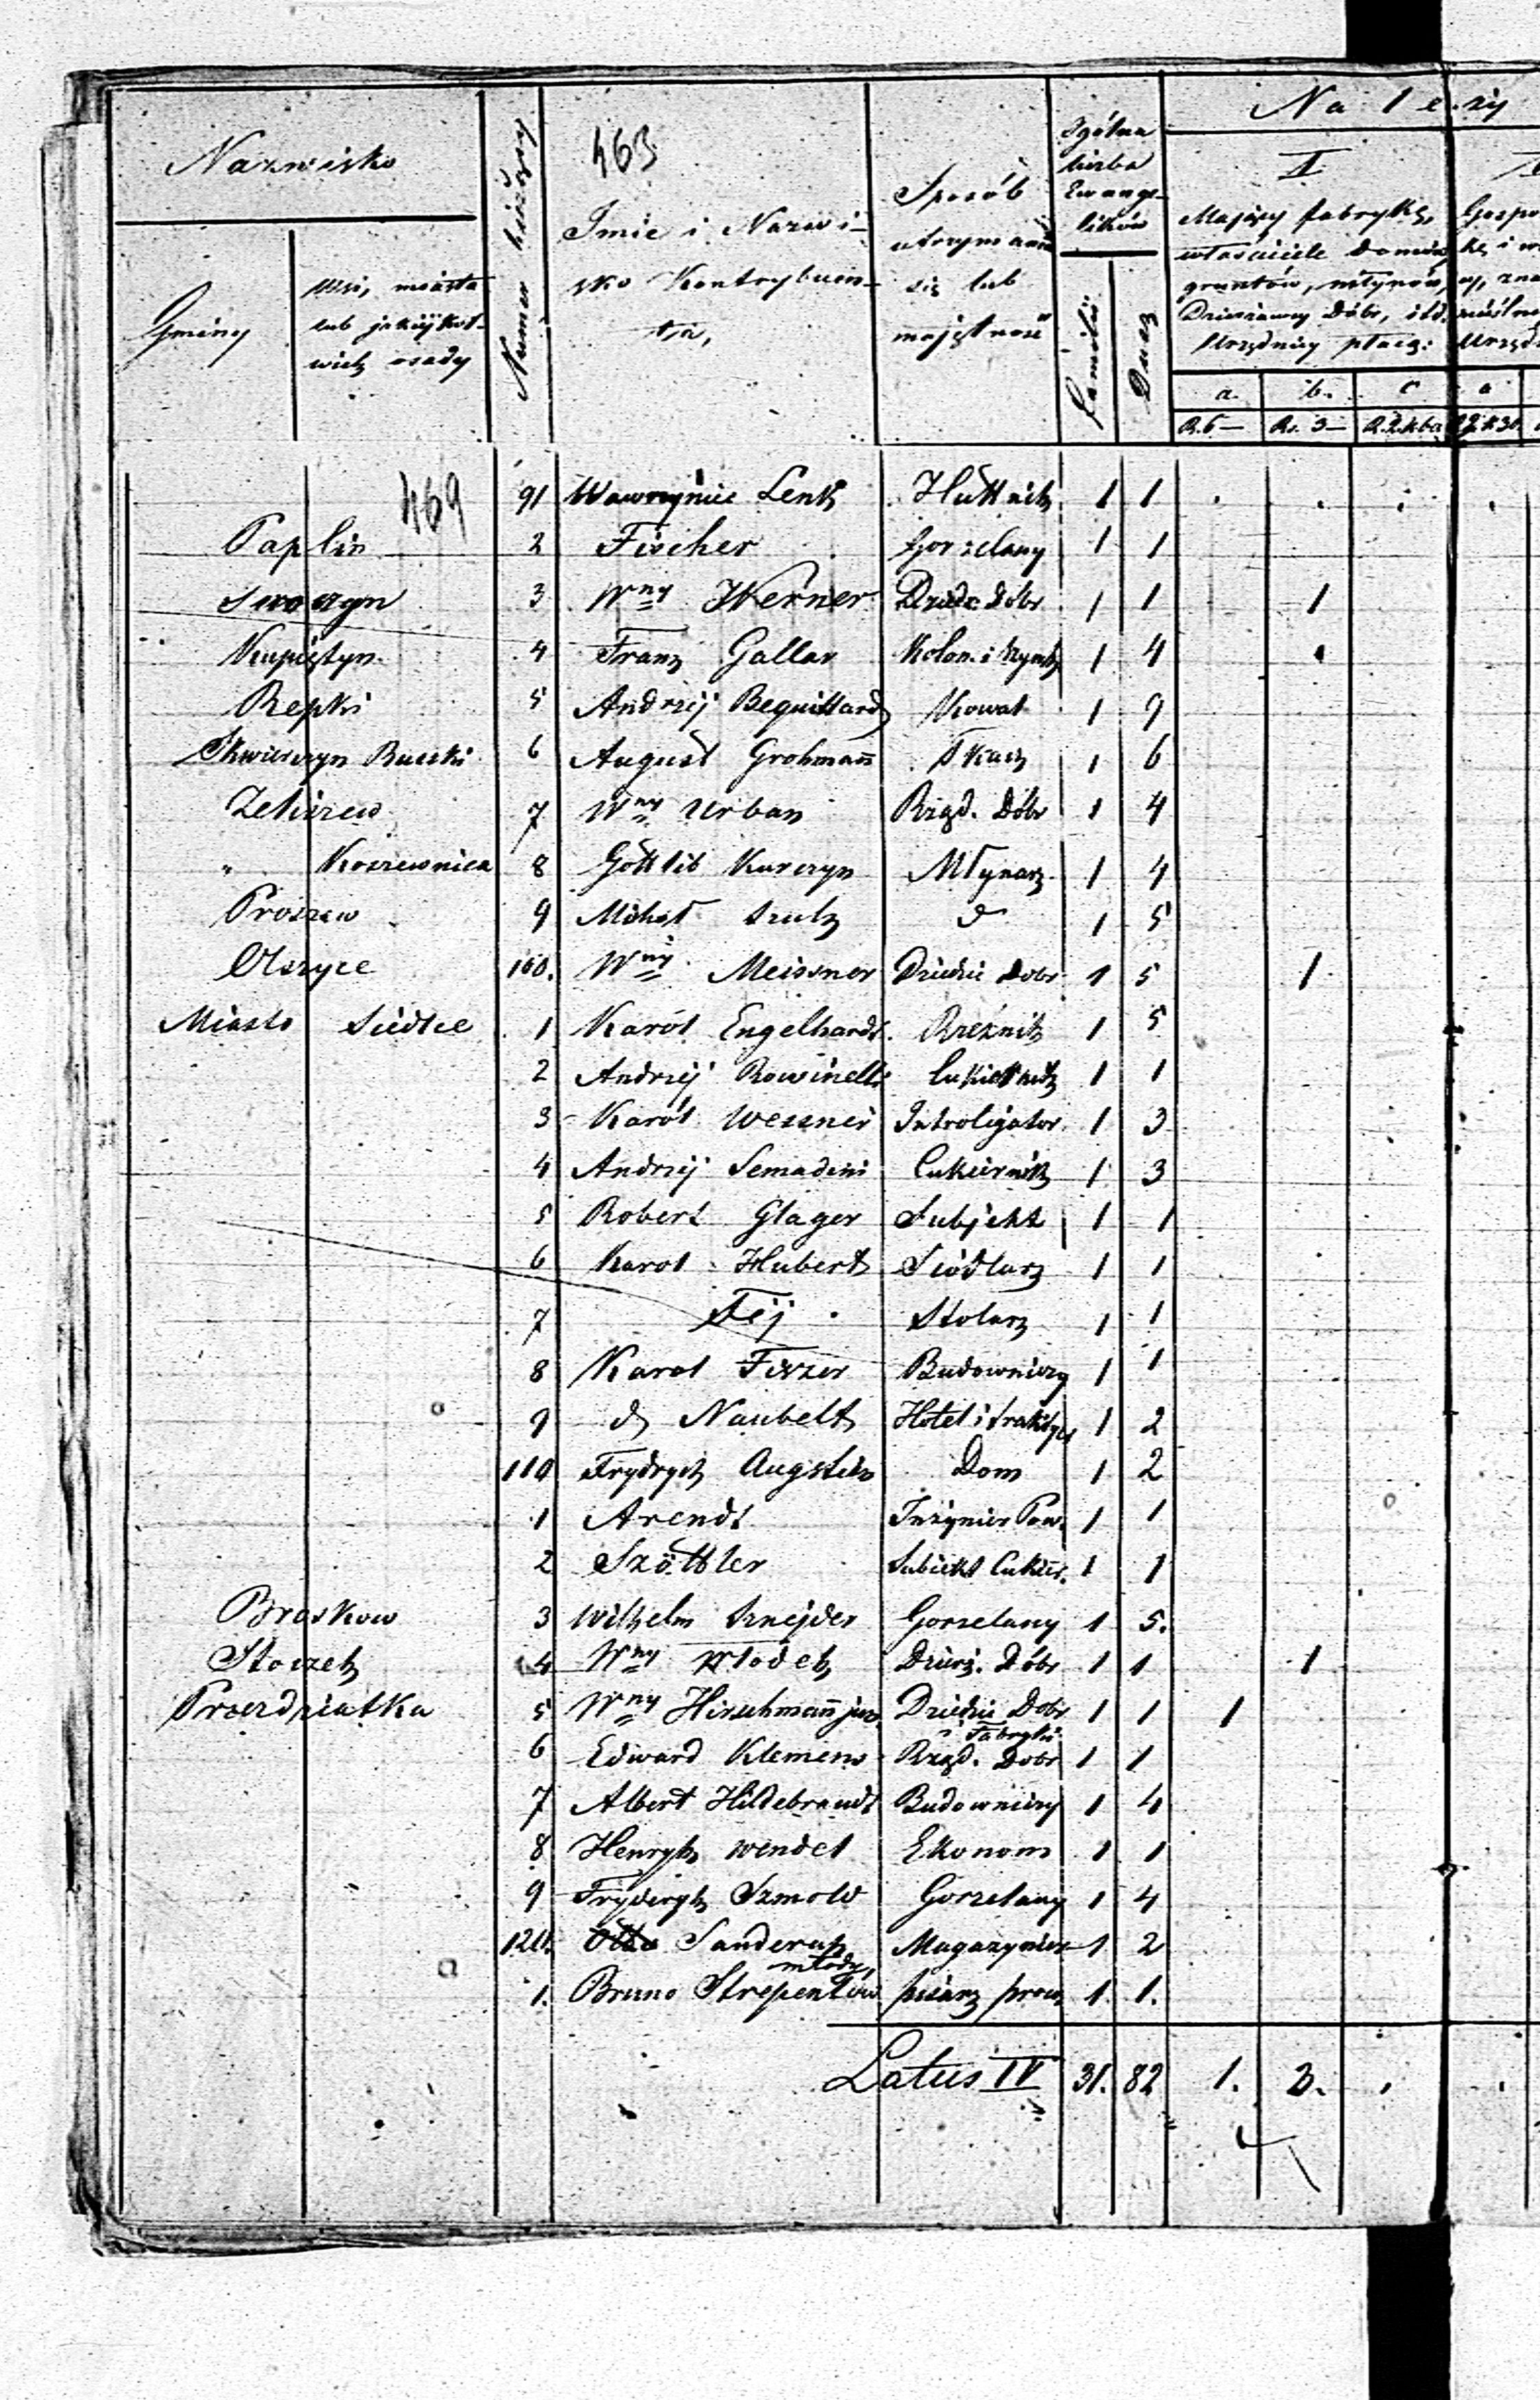 463
Nazwisko
Gminy
wsi, miasta
lub jakiejkol-
wiek osady
Numer bieżący
Imie i Nazwi-
sko Kontrybuen-
ta,
Sposób
utrzymania
się lub
majętność
Ogólna
liczba
Ewange-
lików
Familii
Dusz
Należy
I
Mający fabrykę,
właściciele domów
gruntów, młynów,
Dzierżawcy Dóbr, itd.
Urzędnicy płacą:
a. b. c a
R. 6 — Rs. 3 —
469
91 Wawrzyniec Lentz Huttnik 1 1
Paplin 2 Fischer Gorzelany 1 1
Swoszyn 3 Wny Werner Dziedz Dóbr 1 1 1
Kupiętyn 4 Franz Gallar Kolon. i 1 4
Repki 5 Andrzej Beguillard Kowal 1 9
Skwierczyn Ruski 6 August Grohmañ Tkacz 1 6
Żeliszew 7 Wny Urban Rząd. Dóbr 1 4
" Koszewnica 8 Gottlib Kurczyn Młynarz 1 4
Proszew 9 Michał Szulz d 1 5
Olszyce 100. Wny Meissner Dziedzic Dobr 1 5 1
Miasto Siedlce 1 Karól Engelhardt Rzeźnik 1 5
2 Andrzej Rowinelli Cukiernik 1 1
3 Karól Wessner Introligator 1 3
4 Andrzej Semadini Cukiernik 1 3
5 Robert Glager Subjekt 1 1
6 Karol Hubert Siodlarz 1 1
7 Fej Stolarz 1 1
8 Karol Fiszer Budowniczy 1 1
9 d Naubelt Hotel i 1 2
110 Frydrych Augstein Dom 1 2
1 Arendt Inżynier Pow. 1 1
2 Szöttler Subiekt Cukier. 1 1
Broskow 3 Wilhelm Sznejder Gorzelany 1 5.
Stoczek 4 Wny Włodek Dzierż. Dóbr 1 1 1
Przezdziatka 5 Wny Hirschmañ jun. Dziedzic Dobr 1 1 1
i Fabryki
6 Edward Klemens Rząd. Dobr 1 1
7 Albert Hildebrandt Budowniczy 1 4
8 Henryk Wendel Ekonom 1 1
9 Fryderyk Szmold Gorzelany 1 4
120. Otto Sanderus Magazynier 1 2
młody
1. Bruno Strepentow pisarz prow 1. 1.
Latus IV 31. 82 1. 3.